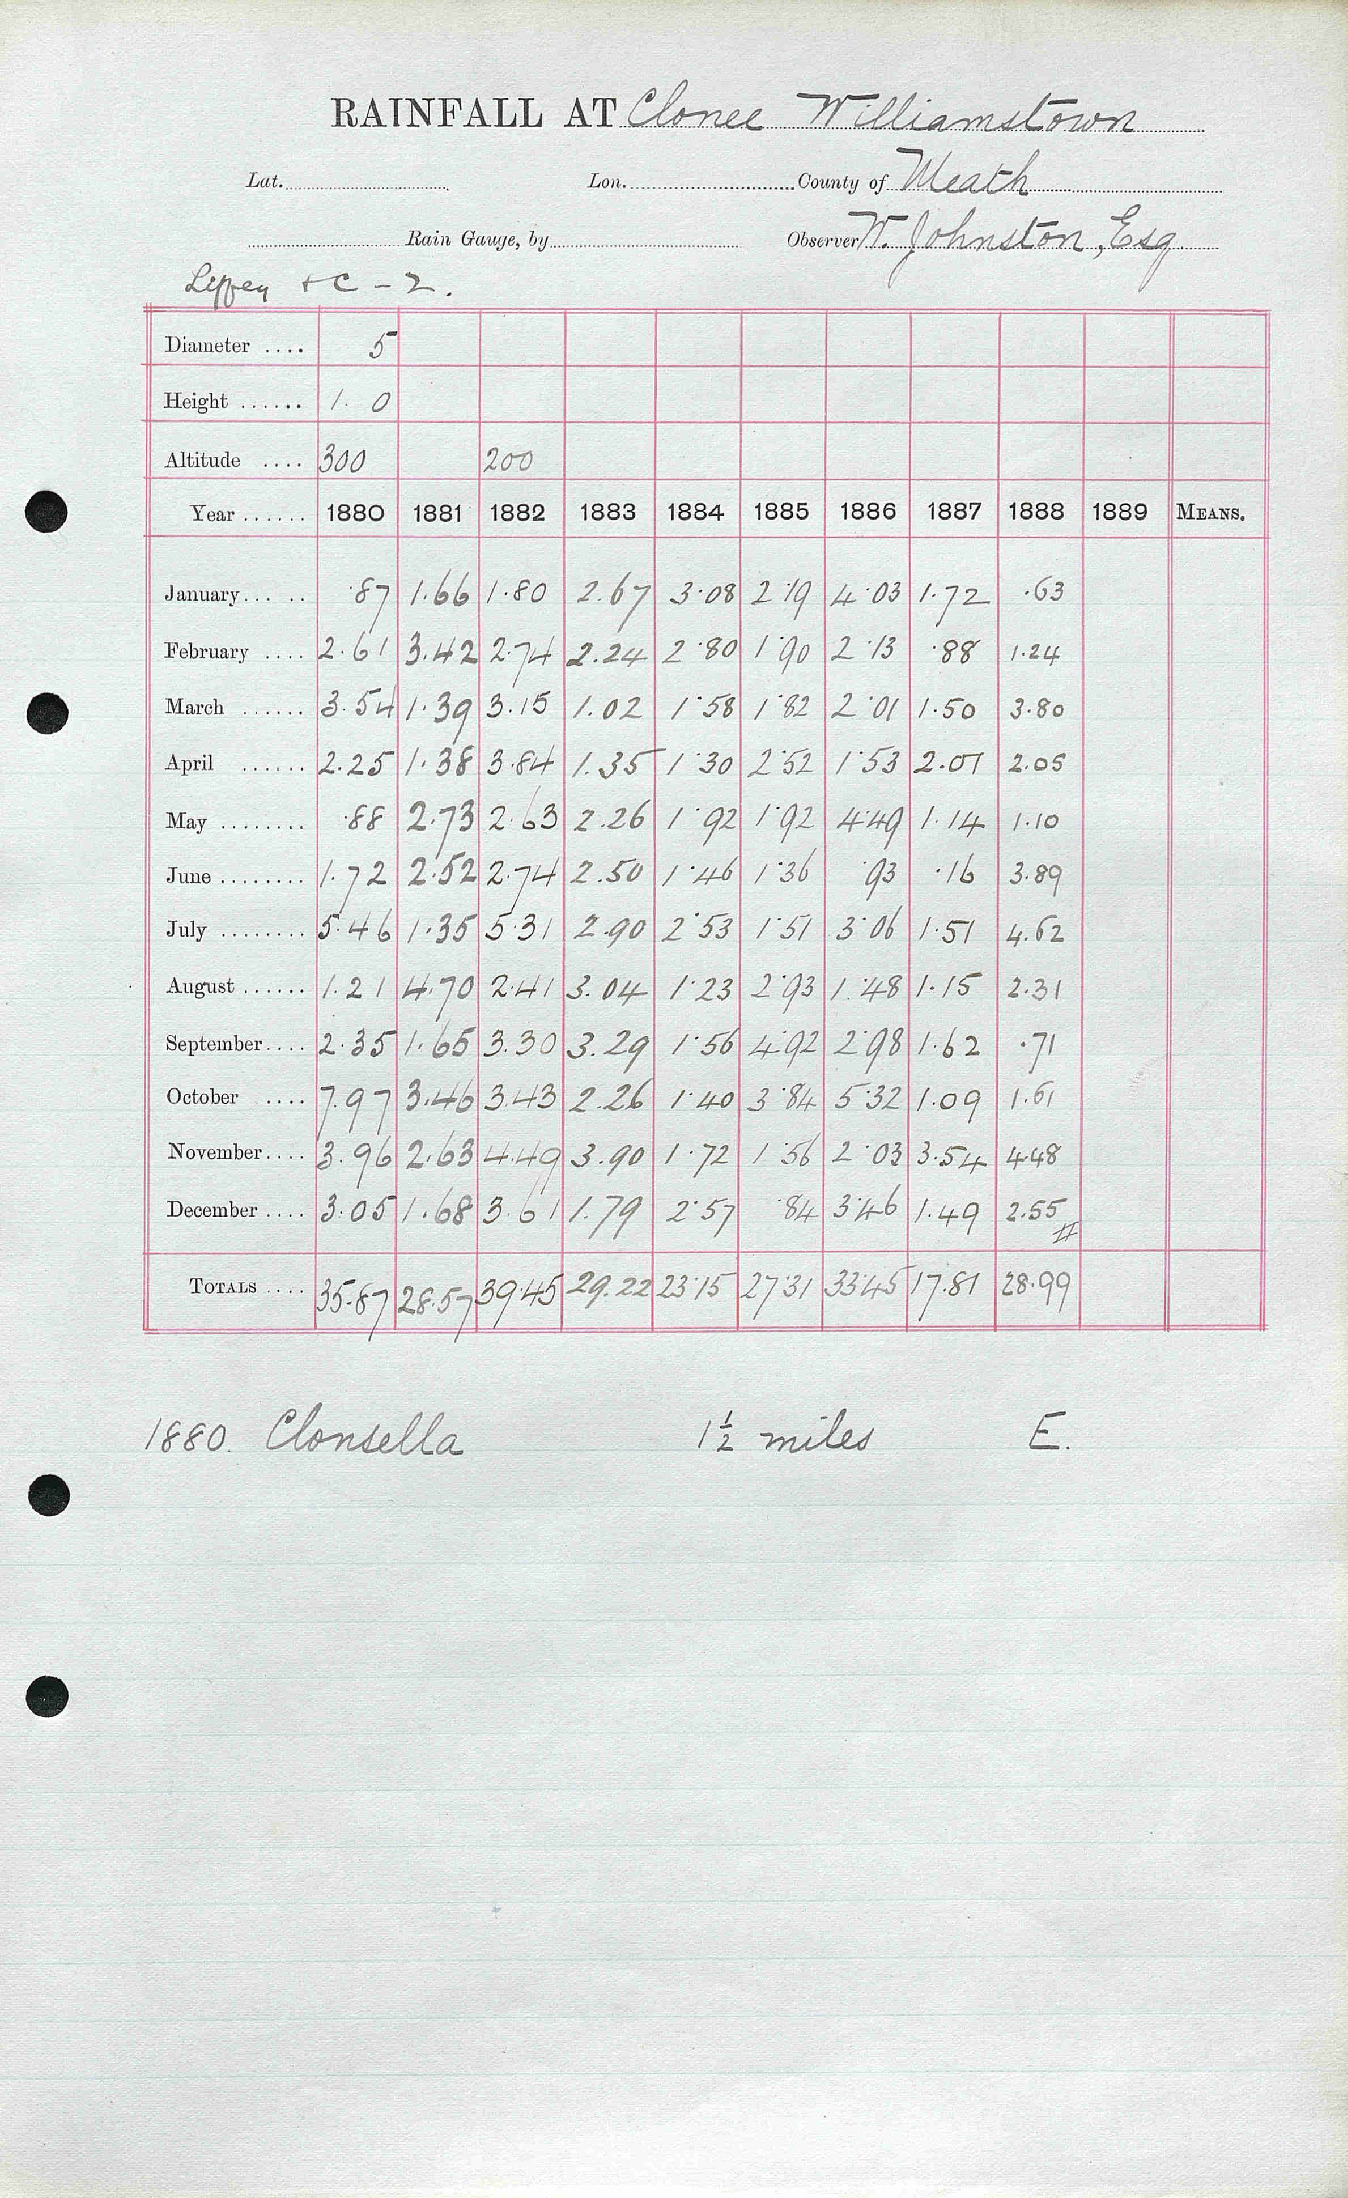 RAINFALL AT Clonee Williamstown
Lat. Lon. County of Meath
Rain Gauge, by Observer W. Johnston, Esq
Liffey & C - 2.
Diameter .... 5
Height ...... 1. 0
Altitude .... 300 200
Year ...... 1880 1881 1882 1883 1884 1885 1886 1887 1888 1889 MEANS.
January... .. ·87 1.66 1·80 2.67 3·08 2·19 4·03 1·72 ·63
February .... 2.61 3.42 2.74 2.24 2·80 1·90 2·13 ·88 1·24
March ...... 3.54 1·39 3.15 1.02 1·58 1·82 2·01 1·50 3·80
April ...... 2.25 1·38 3.84 1.35 1·30 2·52 1·53 2.07 2.05
May ........ ·88 2.73 2.63 2.26 1·92 1·92 4·49 1·14 1·10
June ........ 1.72 2.52 2.74 2.50 1·46 1·36 ·93 ·16 3.89
July ........ 5.46 1·35 5.31 2.90 2·53 1·51 3·06 1·51 4.62
August ...... 1.21 4.70 2.41 3.04 1·23 2·93 1·48 1·15 2.31
September.... 2.35 1.65 3.30 3.29 1·56 4·92 2·98 1·62 ·71
October .... 7.97 3.46 3.43 2.26 1·40 3·84 5·32 1·09 1.61
November.... 3.96 2.63 4.49 3.90 1·72 1·56 2·03 3.54 4.48
December .... 3.05 1.68 3.61 1.79 2·57 ·84 3·46 1.49 2.55
TOTALS .... 35.87 28.57 39.45 29.22 23·15 27·31 33·45 17.81 28.99
1880. Clonsella 1½ miles E.